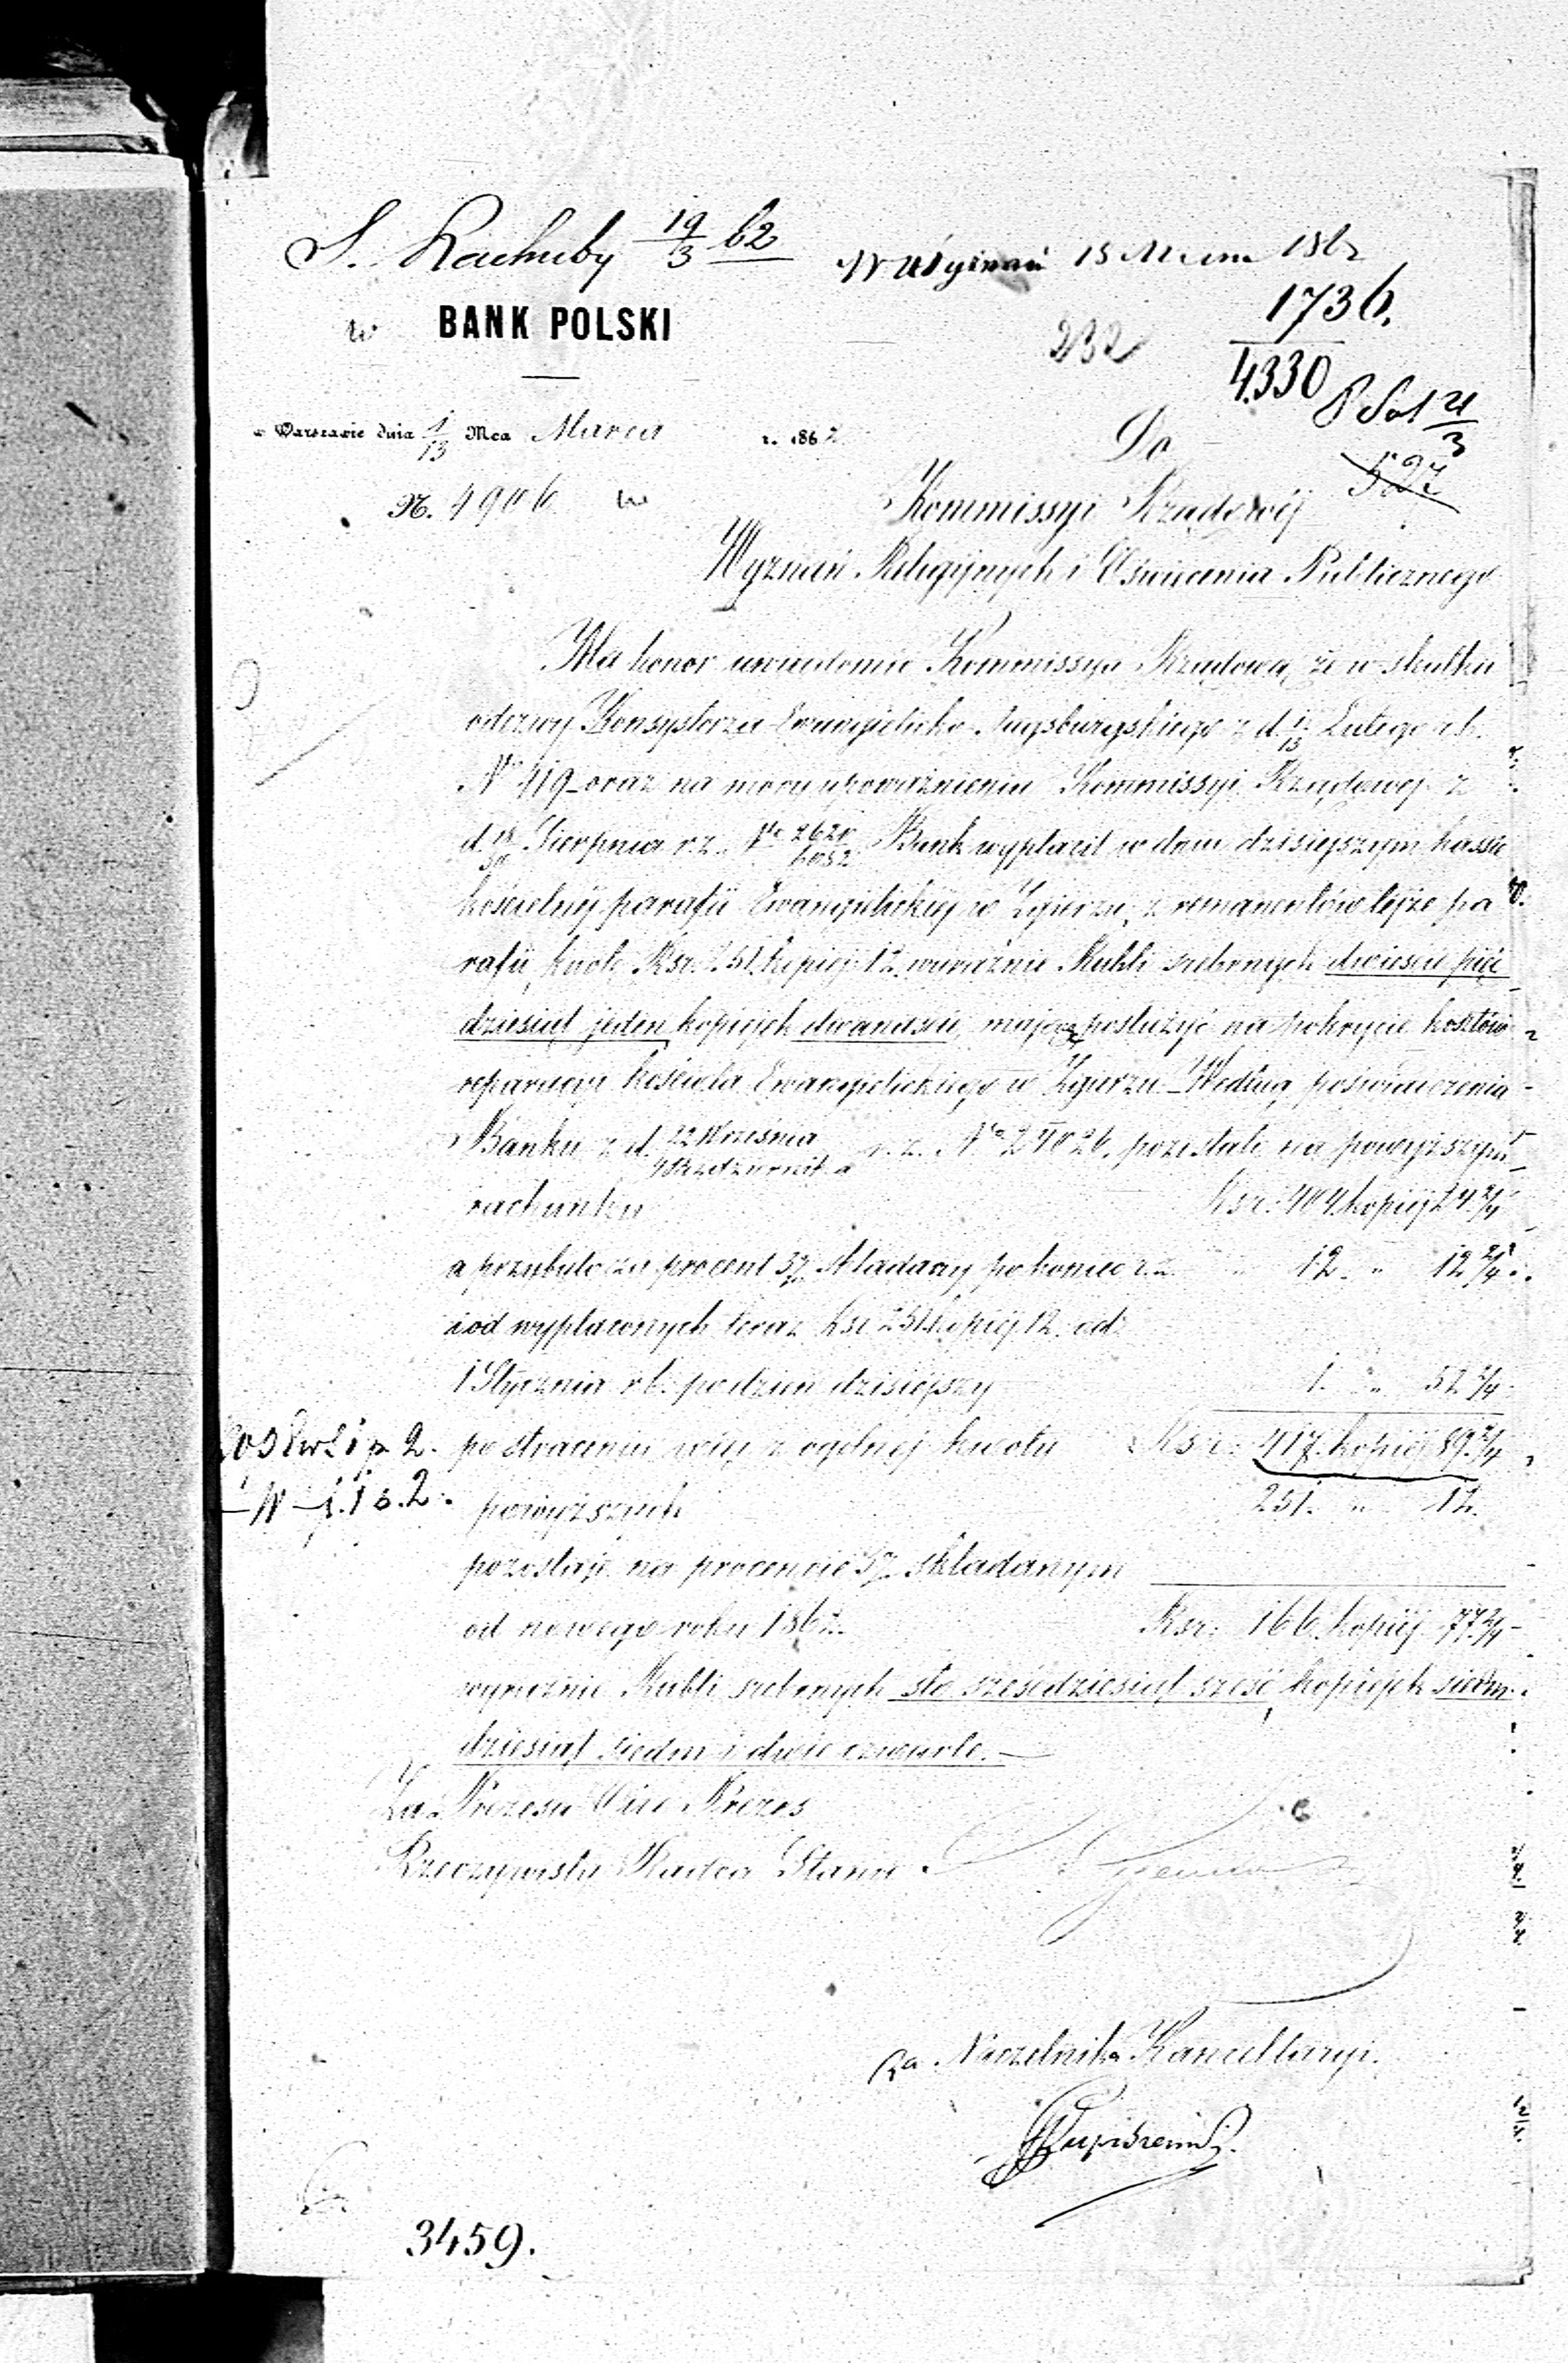 S. Rachuby 19/3 62
W Wydziale 15 Marca 1862
1736.
4330
w BANK POLSKI
232
P Sol 21/3
w Warszawie dnia 1/13 Mca Marca r. 1862
Do
527
N. 4906 w
Kommissyi Rządowéj
Wyznań Religijnych i Oświecenia Publicznego
Ma honor uwiadomić Kommissyą Rządową, że w skutku
odezwy Konsystorza Ewangielicko-Augsburgskiego z d. 1/13 Lutego r.b.
No 419 oraz na mocy upoważnienia Kommissyi Rządowej z
d. 18/30 Sierpnia r.z. No 2620/6082 Bank wypłacił w dniu dzisiejszym kassie
kościelnéj parafii Ewangielickiéj w Zgierzu, z remanentów téjże pa
rafii, kwotę Rsr. 251 kopiej. 12 wyraźnie Rubli srebrnych dwieście pięć
dziesiąt jeden kopiejek dwanaście, mającą posłużyć na pokrycie kosztów
reparacyi kościoła Ewangielickiego w Zgierzu. Według poświadczenia
Banku z d. 22 Września / 4 Października r.z. No 24026. pozostało na powyższym
rachunku Rsr. 404 kopiej 24 2/4
a przybyło za procent 3% składany po koniec r.z. " 12. " 12 2/4.
i od wypłaconych teraz Rsr 251 kopiej 12. od
1 Stycznia r.b. po dzień dzisiejszy " 1. " 52 2/4
po straceniu więc z ogólnej kwoty Rsr. 417. kopiej 89 2/4
powyższych 251. " 12.
pozostaje na procencie 3% składanym
od nowego roku 1862. Rsr. 166. kopiej. 77 2/4
wyraźnie Rubli srebrnych sto sześćdziesiąt sześć, kopiejek siedm-
dziesiąt siedm i dwie czwarte.—
Za Prezesa Vice Prezes
Rzeczywisty Radca Stanu
za Naczelnika Kancellaryi.
3459.